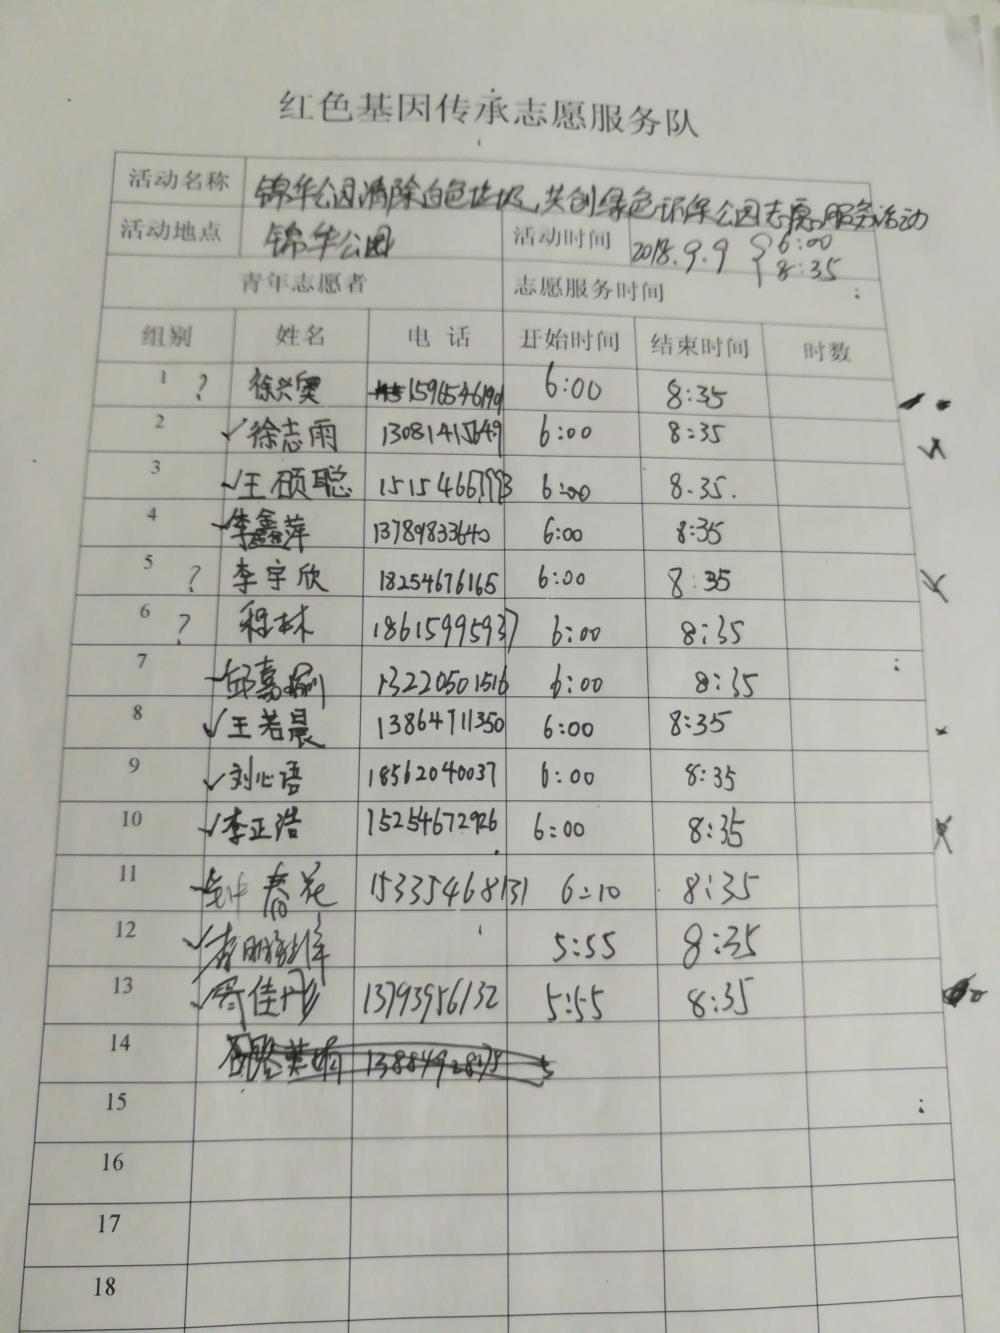 红色基因传承志愿服务队
活动名称 锦华公园清除白色垃圾,共创绿色环保公园志愿服务活动
活动地点 锦华公园 活动时间 2018.9.9 6:00
8:35
青年志愿者 志愿服务时间
组别 姓名 电话 开始时间 结束时间 时数
1 ? 徐兴 6:00 8:35
2 ✓徐志雨 13081415649 6:00 8:35
3 ✓王硕聪 6:00 8.35.
4 ✓李鑫萍 13789833640 6:00 8:35
5 ? 李宇欣 18254676165 6:00 8:35
6 ? 程林 18615995937 6:00 8:35
7 邱嘉 13220501516 6:00 8:35
8 ✓王若晨 13864711350 6:00 8:35
9 ✓刘心语 18562040037 6:00 8:35
10 ✓李正浩 15254672926 6:00 8:35
11 春花 15335468131 6:10 8:35
12 ✓李明 5:55 8:35
13 ✓佳彤 13793956132 5:55 8:35
14
15
16
17
18